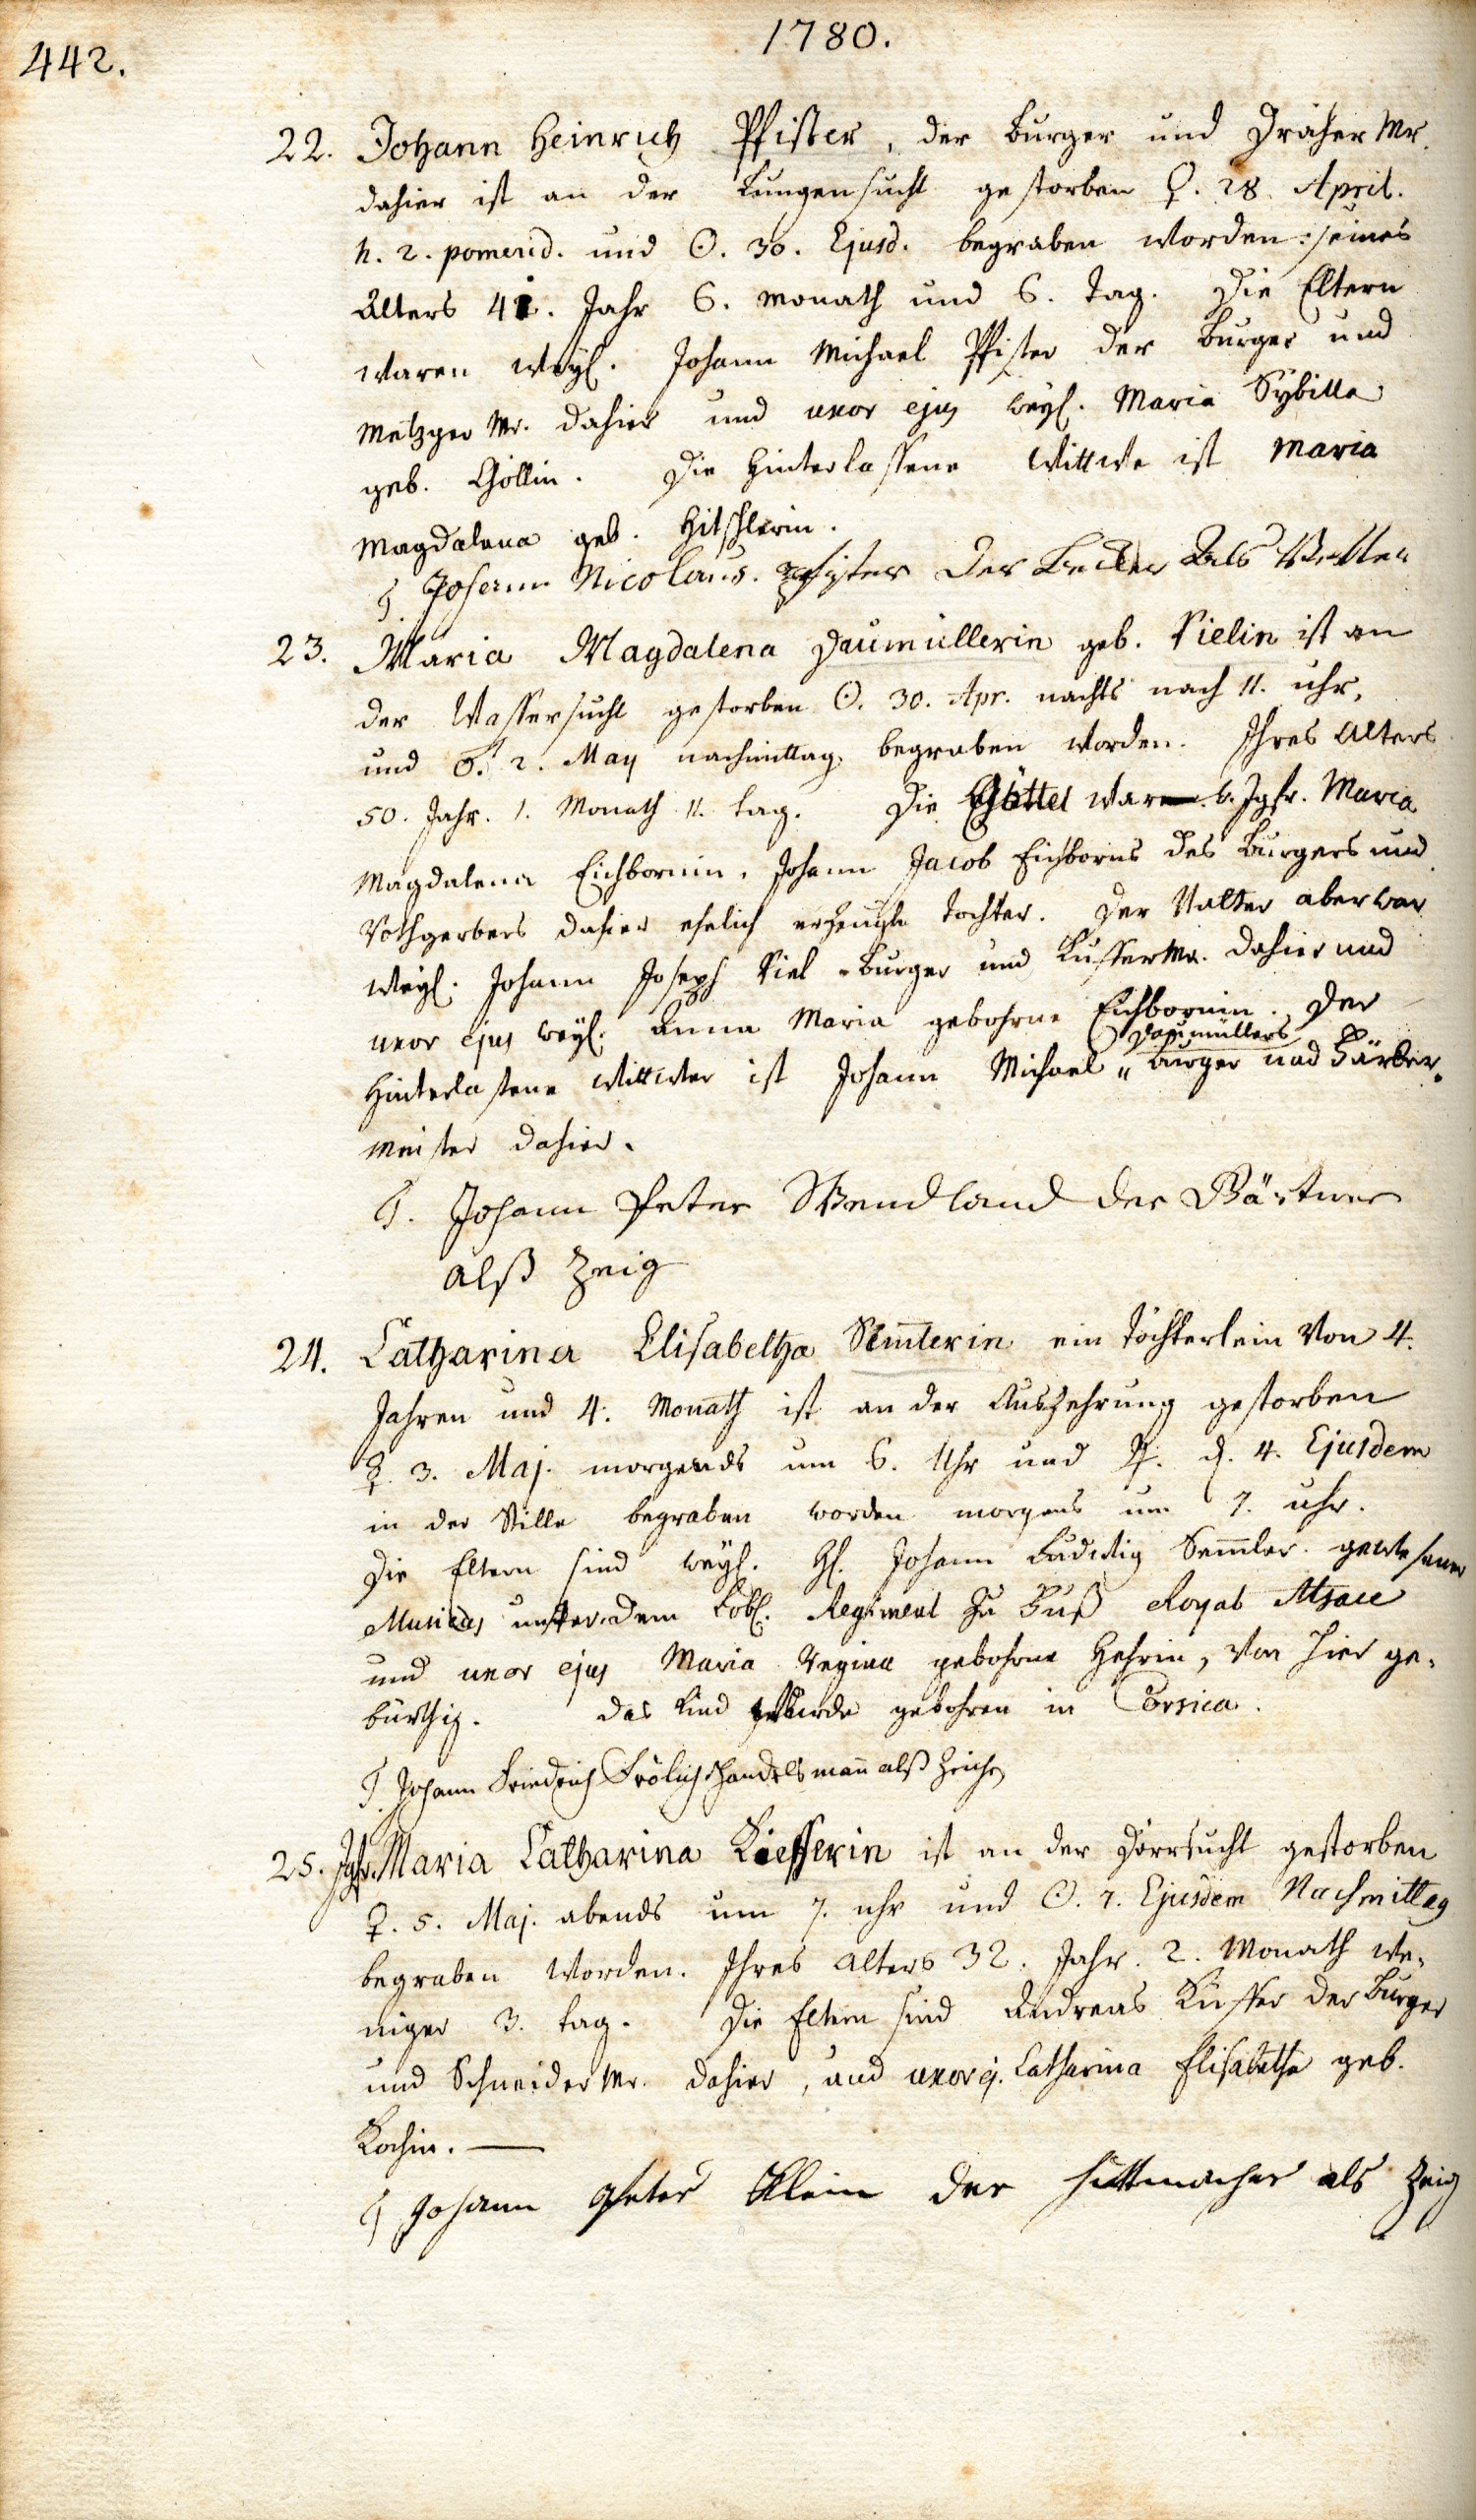 442.
1780.
22. Johann Heinrich Pfister, der Burger und Dräher Mr.
dahier ist an der Lungensucht gestorben ♀. 28. April.
h. 2. pomerid. und ☉. 30. Ejusd. begraben worden: seines
Alters 41. Jahr 6. Monath und 6. Tag. Die Eltern
waren weyl. Johann Michael Pfister der Burger und
Metzger Mr. dahier und uxor ejus weyl. Maria Sybilla
geb. Göllin. Die Hinterlassene Wittwe ist Maria
Magdalena geb. Hitschlerin.
T. Johann Nicolaus Pfister der Becker Als Vetter
23. Maria Magdalena Daumüllerin geb. Vielin ist an
der Wassersucht gestorben ☉. 30. Apr. nachts nach 11. uhr,
und ♂. 2. May nachmittag begraben worden. Ihres Alters
50. Jahr. 1. Monath 11. tag. Die Göttel war Jgfr. Maria
Magdalena Eichbornin, Johann Jacob Eichborns des Burgers und
Rothgerbers dahier ehelich erzeugte Tochter. Der Vatter aber war
weyl. Johann Joseph Viel Burger und Kuffer Mr. dahier und
uxor ejus weyl. Anna Maria gebohrne Eichbornin. Der
Daumüllers
Hinterlassene Wittwer ist Johann Michael " Burger und Färber-
meister dahier.
T. Johann Peter Wendland der Gärtner
alß Zeig
24. Catharina Elisabetha Sem̄lerin ein Töchterlein von 4.
Jahren und 4. Monath ist an der Auszehrung gestorben
☿. 3. Maj. morgends um 6. Uhr und ♃. d. 4. Ejusdem
in der Stille begraben worden morgens um 7. uhr.
Die Eltern sind weyl. H. Johann Ludwig Sem̄ler gewesener
Musicus unter dem Löbl. Regiment zu Fuß Royal Alsace
und uxor ejus Maria Regina gebohrne Hehrin, von hier ge-
bürthig. Das Kind wurde gebohren in Corsica.
T. Johann Friedrich Frölich Handelsman̄ alß Zeiche
25. Jgfr. Maria Catharina Kiefferin ist an der Dörrsucht gestorben
♀. 5. Maj. abends um 7. uhr und ☉. 7. Ejusdem Nachmittag
begraben worden. Ihres Alters 32. Jahr. 2. Monath we-
niger 3. tag. Die Eltern sind Andreas Küffer der Burger
und Schneider Mr. dahier, und uxor ej. Catharina Elisabetha geb.
Kochin. —
T Johann Peter Klein der Huttmacher als Zeig